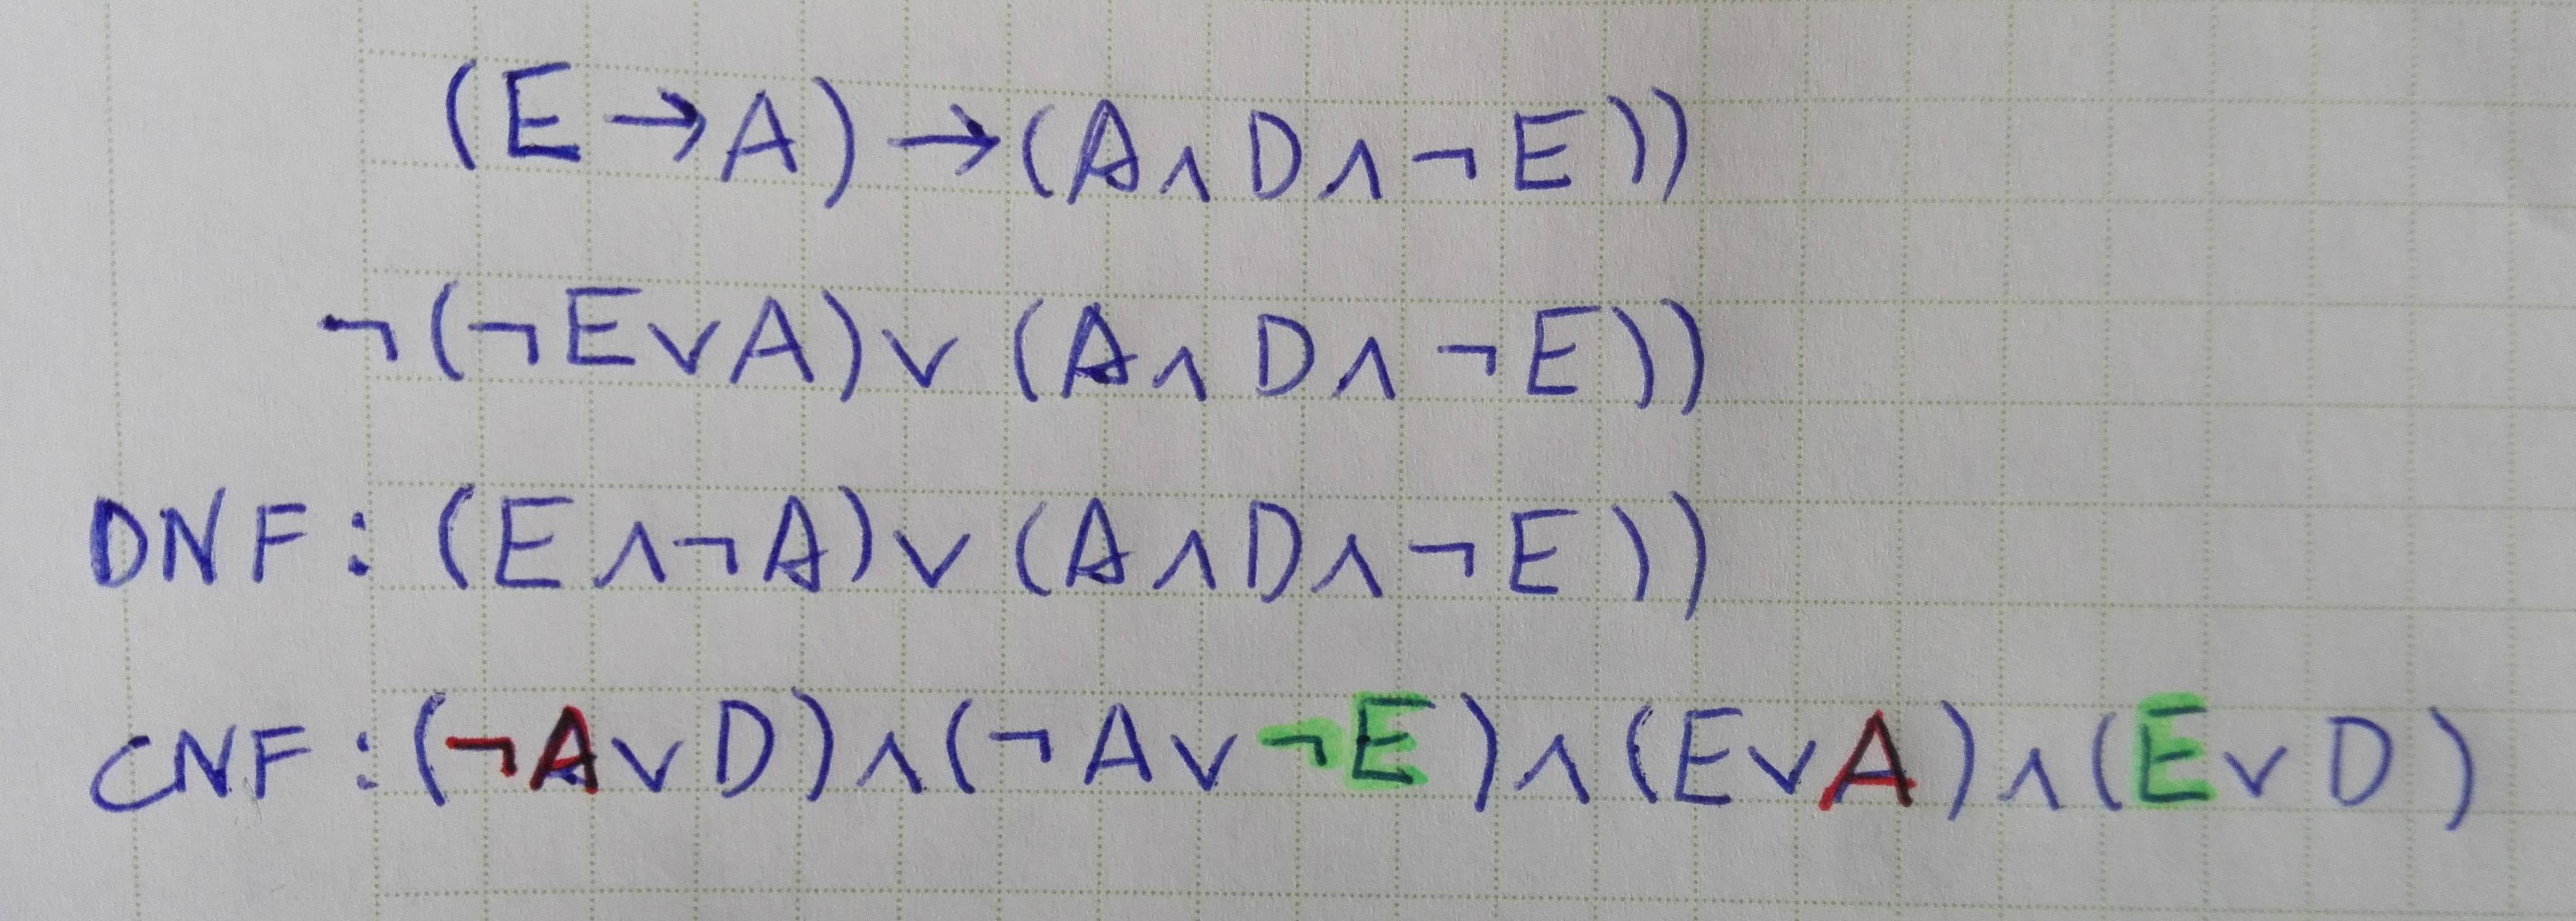 (E → A) → (A ∧ D ∧ ¬ E))
¬ (¬ E ∨ A) ∨ (A ∧ D ∧ ¬ E))
DNF: (E ∧ ¬ A) ∨ (A ∧ D ∧ ¬ E))
CNF: (¬ A ∨ D) ∧ (¬ A ∨ ¬ E) ∧ (E ∨ A) ∧ (E ∨ D)